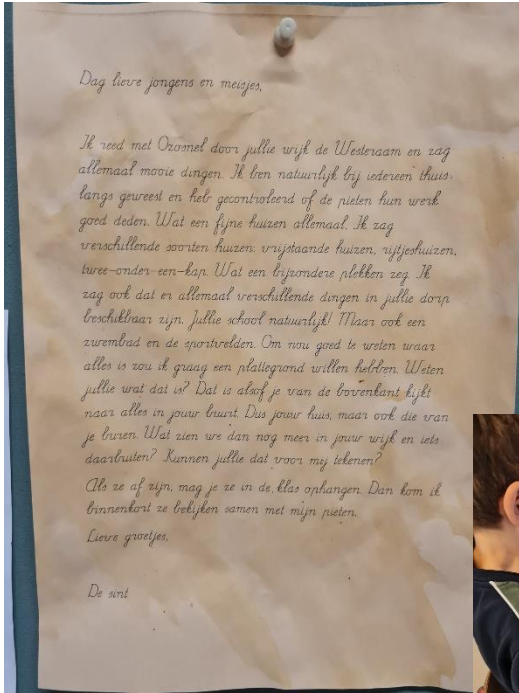 Dag lieve jongens en meisjes,
Ik reed met Ozosnel door jullie wijk de Westeraam en zag
allemaal mooie dingen. Ik ben natuurlijk bij iedereen thuis
langs geweest en heb gecontroleerd of de pieten hun werk
goed deden. Wat een fijne huizen allemaal. Ik zag
verschillende soorten huizen: vrijstaande huizen, rijtjeshuizen,
twee-onder-een-kap. Wat een bijzondere plekken zeg. Ik
zag ook dat er allemaal verschillende dingen in jullie dorp
beschikbaar zijn. Jullie school natuurlijk! Maar ook een
zwembad en de sportvelden. Om nou goed te weten waar
alles is zou ik graag een plattegrond willen hebben. Weten
jullie wat dat is? Dat is alsof je van de bovenkant kijkt
naar alles in jouw buurt. Dus jouw huis, maar ook die van
je buren. Wat zien we dan nog meer in jouw wijk en iets
daarbuiten? Kunnen jullie dat voor mij tekenen?
Als ze af zijn, mag je ze in de klas ophangen. Dan kom ik
binnenkort ze bekijken samen met mijn pieten.
Lieve groetjes,
De sint